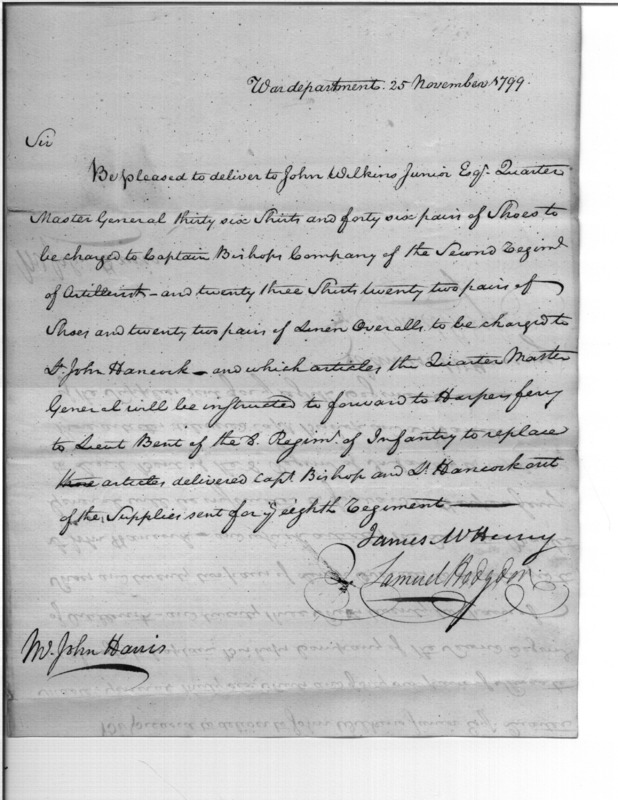 War department. 25 November 1799.
Sir
Be pleased to deliver to John Wilkins Junior Esqr. Quarter
Master General thirty six Shirts and forty six pairs of Shoes to
be charged to Captain Bishops Company of the Second Regimt.
of Artillerists – and twenty three Shirts twenty two pairs of
Shoes and twenty two pairs of Linen Overalls to be charged to
Lt. John Hancock – and which articles the Quarter Master
General will be instructed to forward to Harpers ferry
to Lieut Bent of the 8. Regimt. of Infantry to replace
articles delivered Capt. Bishop and Lt. Hancock out
of the Supplies sent for ye eighth Regiment –
James McHenry
Samuel Hodgdon
Mr. John Harris